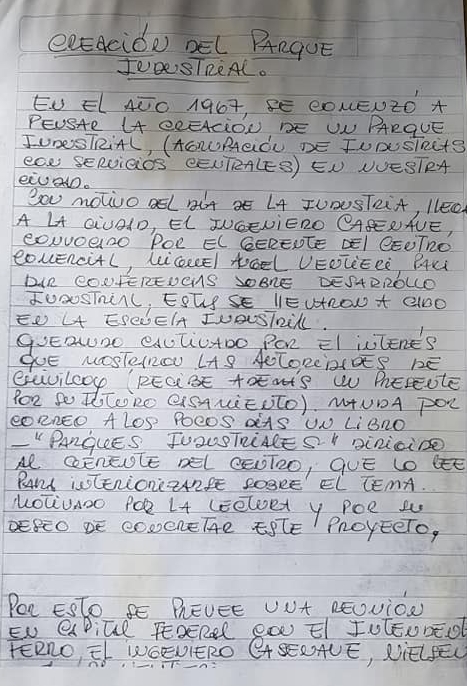 CREACIÓN DEL PARQUE
INDUSTRIAL.
EN EL AÑO 1967, SE COMENZÓ A
PENSAR LA CREACIÓN DE UN PARQUE
INDUSTRIAL, (AGRUPACIÓN DE INDUSTRIAS
CON SERVICIOS CENTRALES) EN NUESTRA
CIUDAD.
CON MOTIVO DEL DÍA DE LA INDUSTRIA, LLEGA
A LA CIUDAD, EL INGENIERO CASENAVE,
CONVOCADO POR EL GERENTE DEL CENTRO
COMERCIAL, MIGUEL ANGEL VENTIERI, PARA
DAR CONFERENCIAS SOBRE DESARROLLO
INDUSTRIAL. ESTAS SE LLEVARON A CABO
EN LA ESCUELA INDUSTRIAL.
QUEDANDO CAUTIVADO POR EL INTERÉS
QUE MOSTRARON LAS AUTORIDADES DE
CHIVILCOY (RECIBE ADEMÁS UN PRESENTE
POR SU FUTURO CASAMIENTO). MANDA POR
CORREO A LOS POCOS DÍAS UN LIBRO
— "PARQUES INDUSTRIALES" DIRIGIDO
AL GERENTE DEL CENTRO, QUE LO LEE
PARA INTERIORIZARSE SOBRE EL TEMA.
MOTIVADO POR LA LECTURA Y POR SU
DESEO DE CONCRETAR ESTE PROYECTO,
POR ESTO SE PREVEE UNA REUNIÓN
EN CAPITAL FEDERAL CON EL INTENDENT
FERRO, EL INGENIERO CASENAVE, NIELSEN